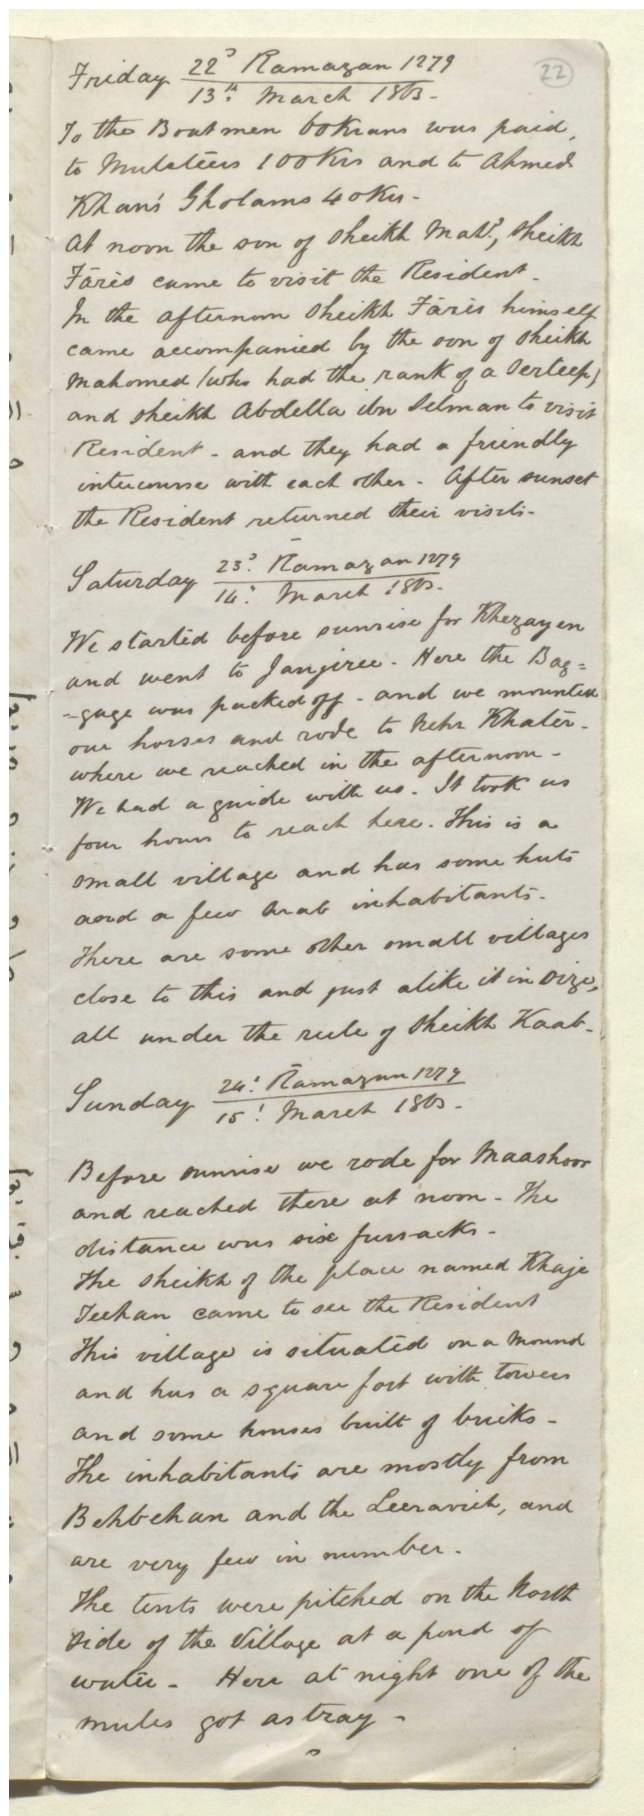 22
Friday 22d Ramazan 1279
13th March 1863.
To the Boatmen 60 Krans was paid,
to Muleteers 100 Krs and to Ahmed
Khan's Gholams 40 Krs -
At noon the son of Sheikh Mahd, Sheikh
Fāris came to visit the Resident -
In the afternoon Sheikh Fāris himself
came accompanied by the son of Sheikh
Mahomed (who had the rank of a Serteep)
and Sheikh Abdella ibn Selman to visit
Resident - and they had a friendly
intercourse with each other - After sunset
the Resident returned their visits -
Saturday 23d Ramazan 1279
14: March 1863.
We started before sunrise for Khezayen
and went to Janjiree. Here the Bag=
=gage was packed off - and we mounted
our horses and rode to Nehr Khater -
where we reached in the afternoon -
We had a guide with us. It took us
four hours to reach here. This is a
small village and has some huts
and a few Arab inhabitants -
There are some other small villages
close to this and just alike it in size,
all under the rule of Sheikh Kaab -
Sunday 24: Ramazan 1279
15: March 1863.
Before sunrise we rode for Maashoor
and reached there at noon - The
distance was six fursacks -
The Sheikh of the place named Khaje
Teehan came to see the Resident
This village is situated on a mound
and has a square fort with towers
and some houses built of bricks -
The inhabitants are mostly from
Behbehan and the Leeravieh, and
are very few in number -
The tents were pitched on the North
side of the Village at a pond of
water - Here at night one of the
mules got astray -